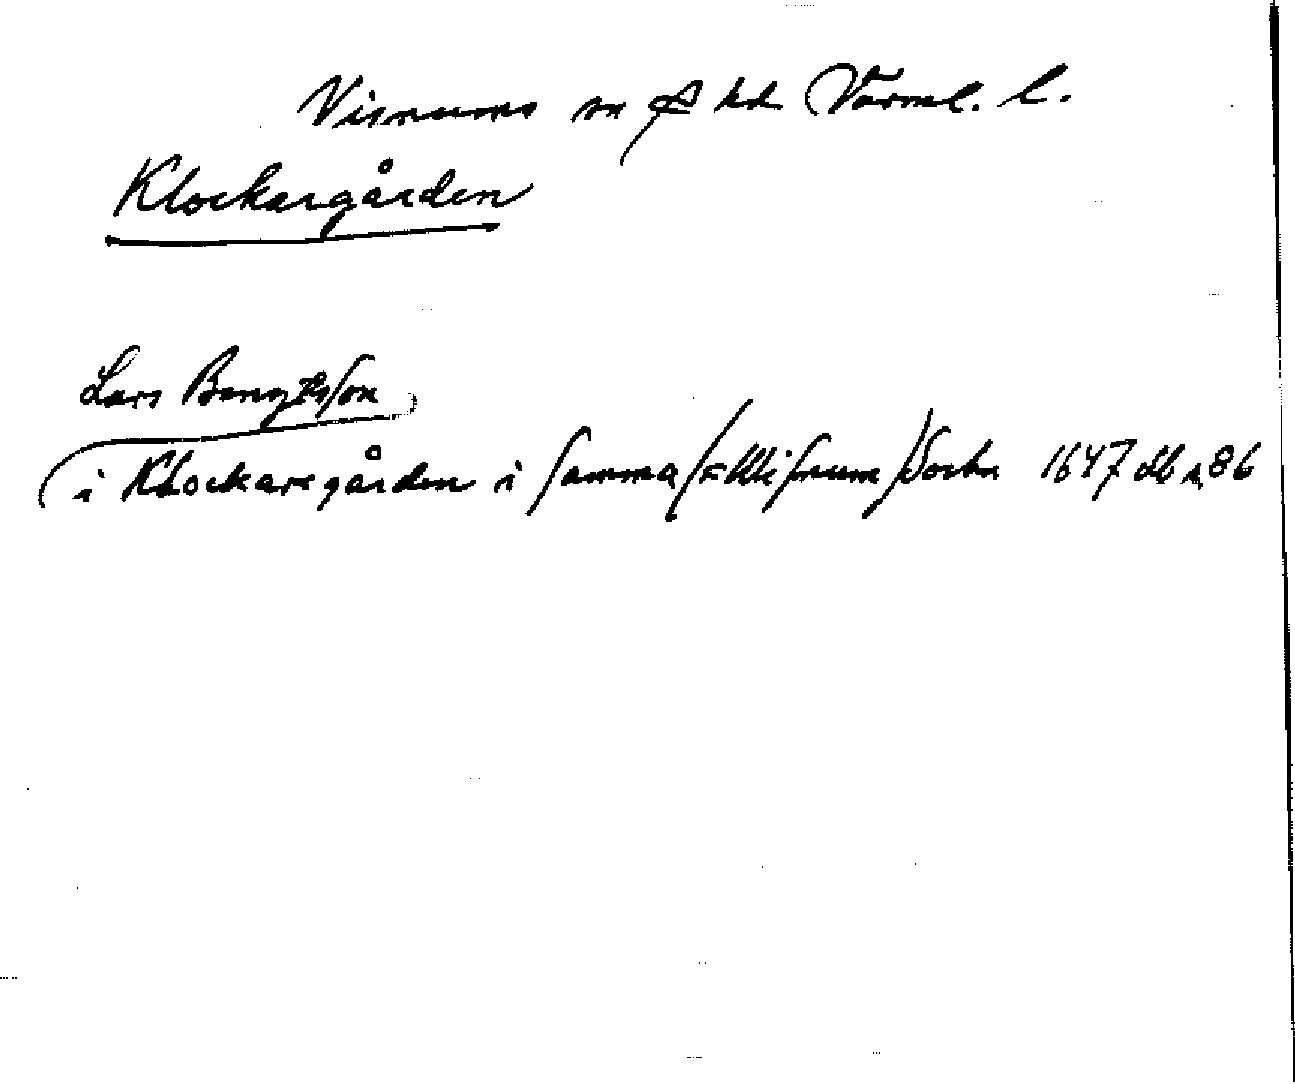 Visnums sn hd Värml. l.
Klockargården
Lars Bengtsson
i Klockaregården i samma (= Wisnum) Sochn 1647 db s. 86